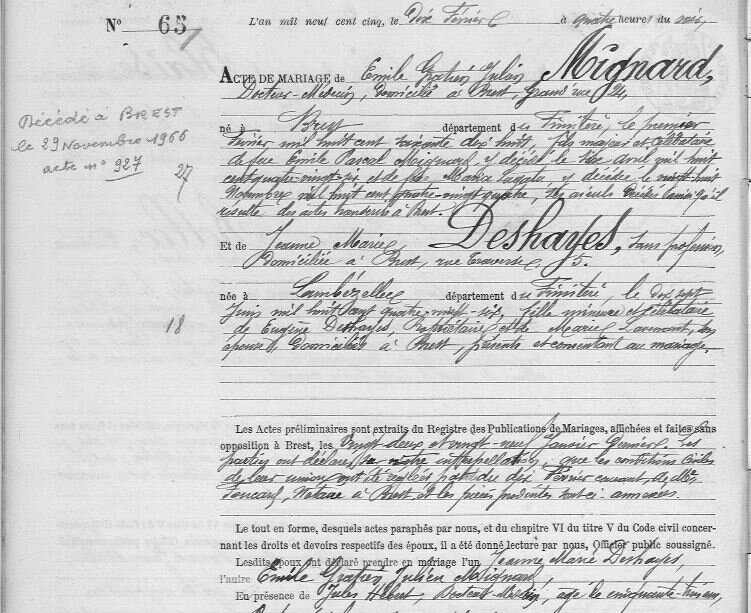 N° 65
L'an mil neuf cent cinq, le Dix Février à quatre heures du soir,
ACTE DE MARIAGE de Emile Gratien Julien Mignard,
Docteur-Médecin, Domicilié à Brest, Grand rue 24,
Décédé à BREST
le 29 Novembre 1966
acte n° 927
27
né à Brest département du Finistère, le premier
Février mil huit cent soixante dix huit, fils majeur et célibataire
de feu Emile Pascal Mignard y décédé le Avril mil huit
cent quatre-vingt-six et de feue Maria y décédée le vingt-huit
Novembre mil huit cent quatre-vingt quatre, aïeuls décédés ainsi qu'il
résulte des actes transcrits à Brest.
Et de Jeanne Marie Deshayes, sans profession,
Domiciliée à Brest, rue Traverse 5.
née à Lambézellec département du Finistère, le dix sept
18
Juin mil huit cent quatre-vingt-six, fille mineure et célibataire
de Eugène Deshayes, Propriétaire et de Marie son
épouse, Domiciliés à Brest, présents et consentant au mariage.
Les Actes préliminaires sont extraits du Registre des Publications de Mariages, affichées et faites sans
opposition à Brest, les Vingt-deux et vingt-neuf Janvier dernier. Les
parties ont déclaré sur notre interpellation, que les conditions civiles
de leur union ont été réglées par acte du dix Février courant, de
Notaire à Brest et les pièces présentées sont ci-annexées.
Le tout en forme, desquels actes paraphés par nous, et du chapitre VI du titre V du Code civil concer-
nant les droits et devoirs respectifs des époux, il a été donné lecture par nous, Officier public soussigné.
Lesdits époux ont déclaré prendre en mariage l'un Jeanne Marie Deshayes
l'autre Emile Gratien Julien Mignard
En présence de Jules Hébert, Docteur-Médecin, âgé de cinquante-trois ans,